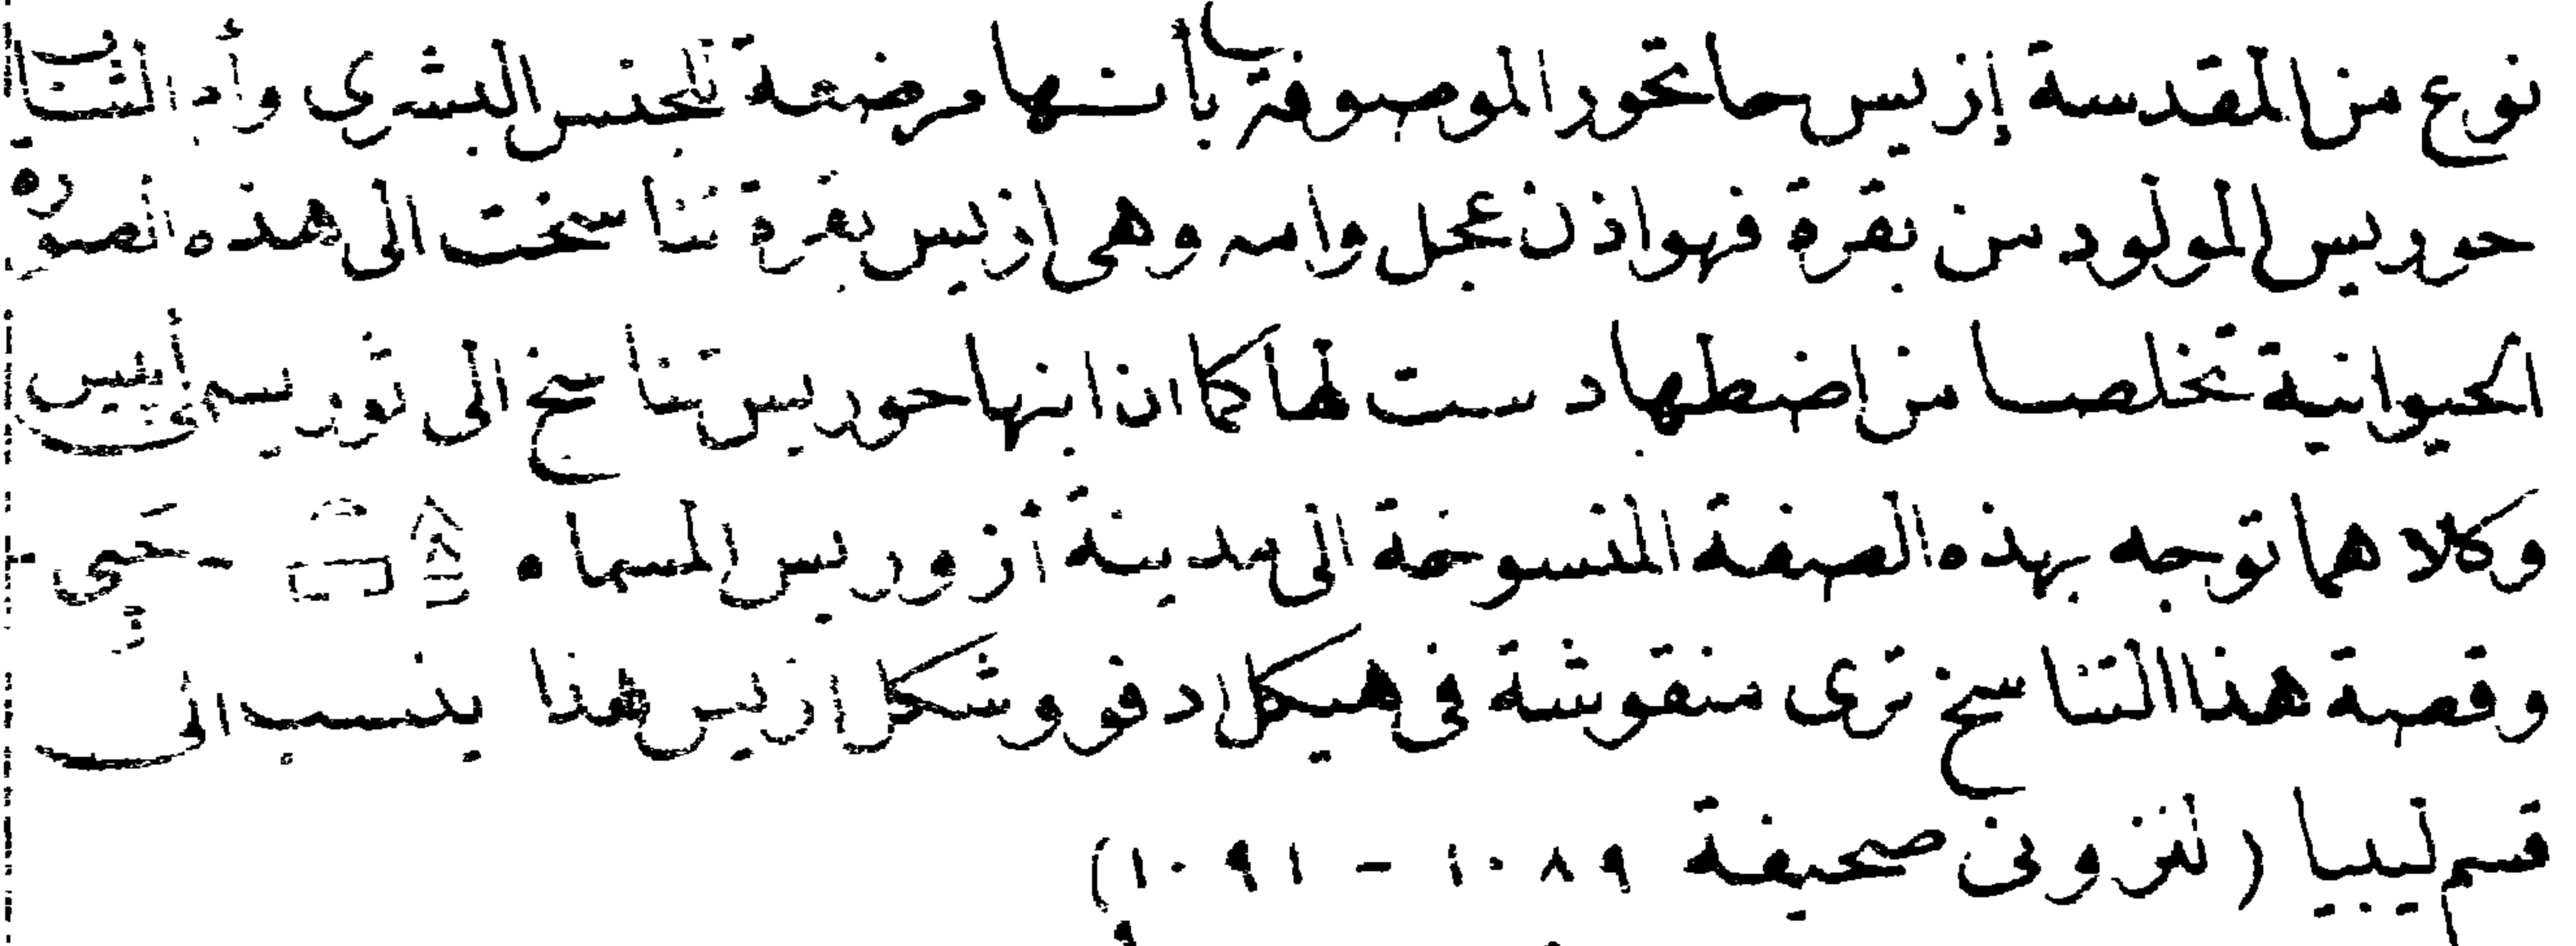 نوع من المقدسة إزيس حاتحور الموصوفة بأنها مرضعة للجنس البشرى وأم الشاب
حوريس المولود من بقرة فهو اذن عجل وامه وهى ازيس بقرة تناسخت الى هذه الصورة
الحيوانية تخلصا من اضطهاد ست لها كما ان ابنها حوريس تناسخ الى ثور يسمى أبيس
وكلاهما توجه بهذه الصفة المنسوخة الى مدينة أزوريس المسماه -
وقصة هذا التناسخ ترى منقوشة فى هيكل ادفو وشكل ازيس هذا ينسب الى
قسم ليبيا (لنزونى صحيفة ١٠٨٩ - ١٠٩١)